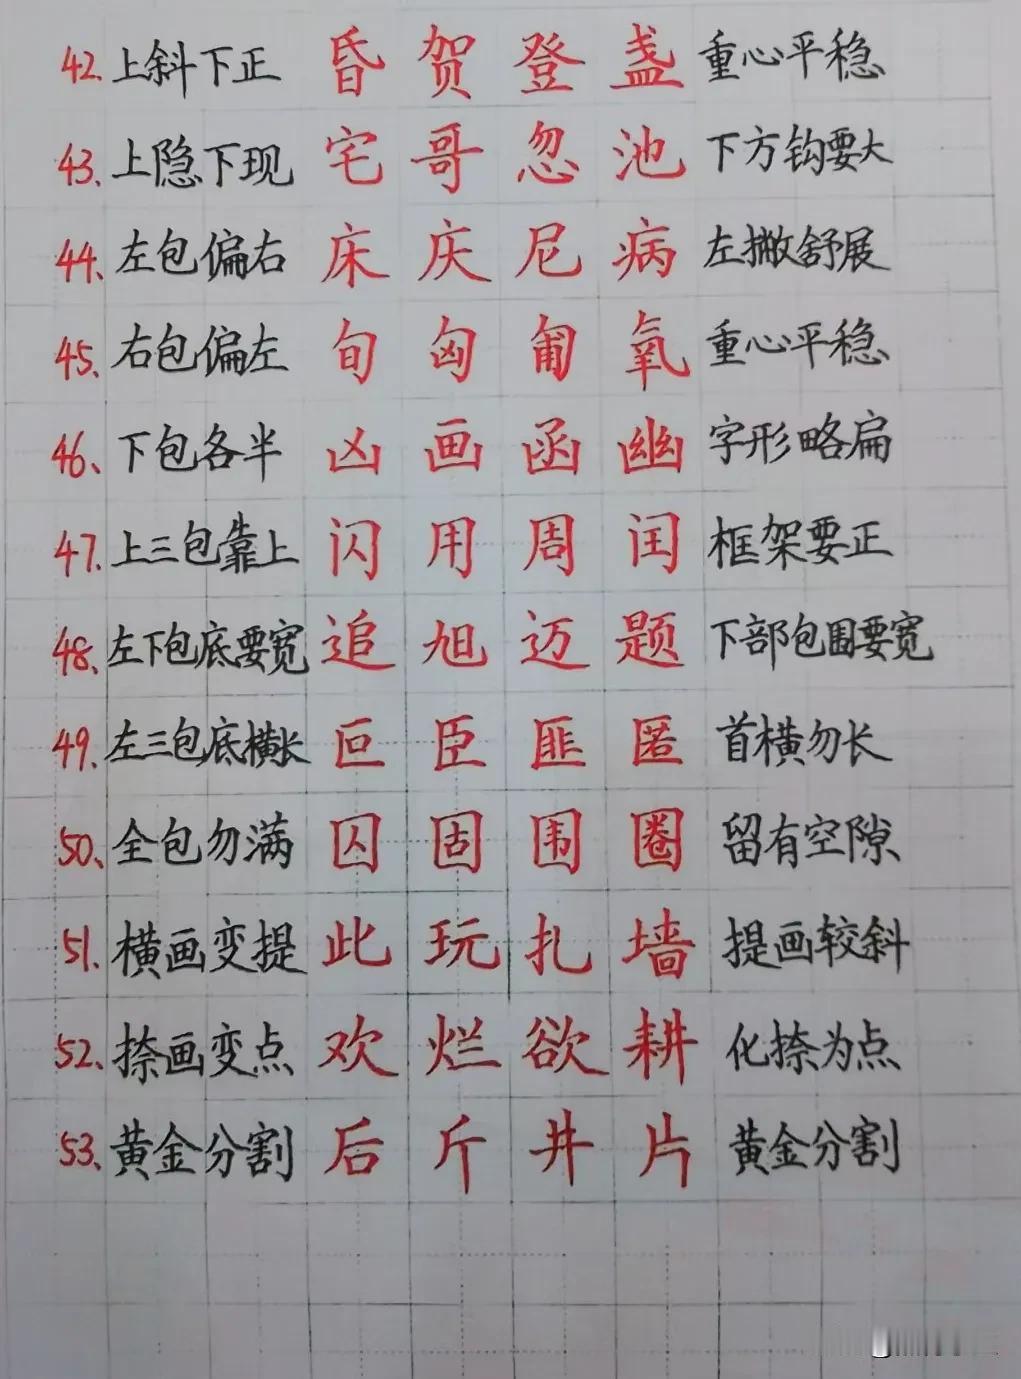 42. 上斜下正 昏 贺 登 盏 重心平稳
43. 上隐下现 宅 哥 忽 池 下方钩要大
44. 左包偏右 床 庆 尼 病 左撇舒展
45. 右包偏左 旬 匈 匍 氧 重心平稳
46. 下包各半 凶 画 函 幽 字形略扁
47. 上三包靠上 闪 用 周 闰 框架要正
48. 左下包底要宽 追 旭 迈 题 下部包围要宽
49. 左三包底横长 叵 臣 匪 匿 首横勿长
50. 全包勿满 囚 固 围 圈 留有空隙
51. 横画变提 此 玩 扎 墙 提画较斜
52. 捺画变点 欢 烂 欲 耕 化捺为点
53. 黄金分割 后 斤 井 片 黄金分割